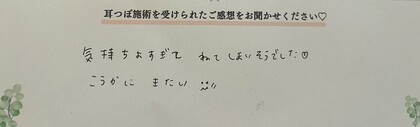 耳つぼ施術を受けられたご感想をお聞かせください♡
気持ちよすぎて ねてしまいそうでした♡
こうかに またい